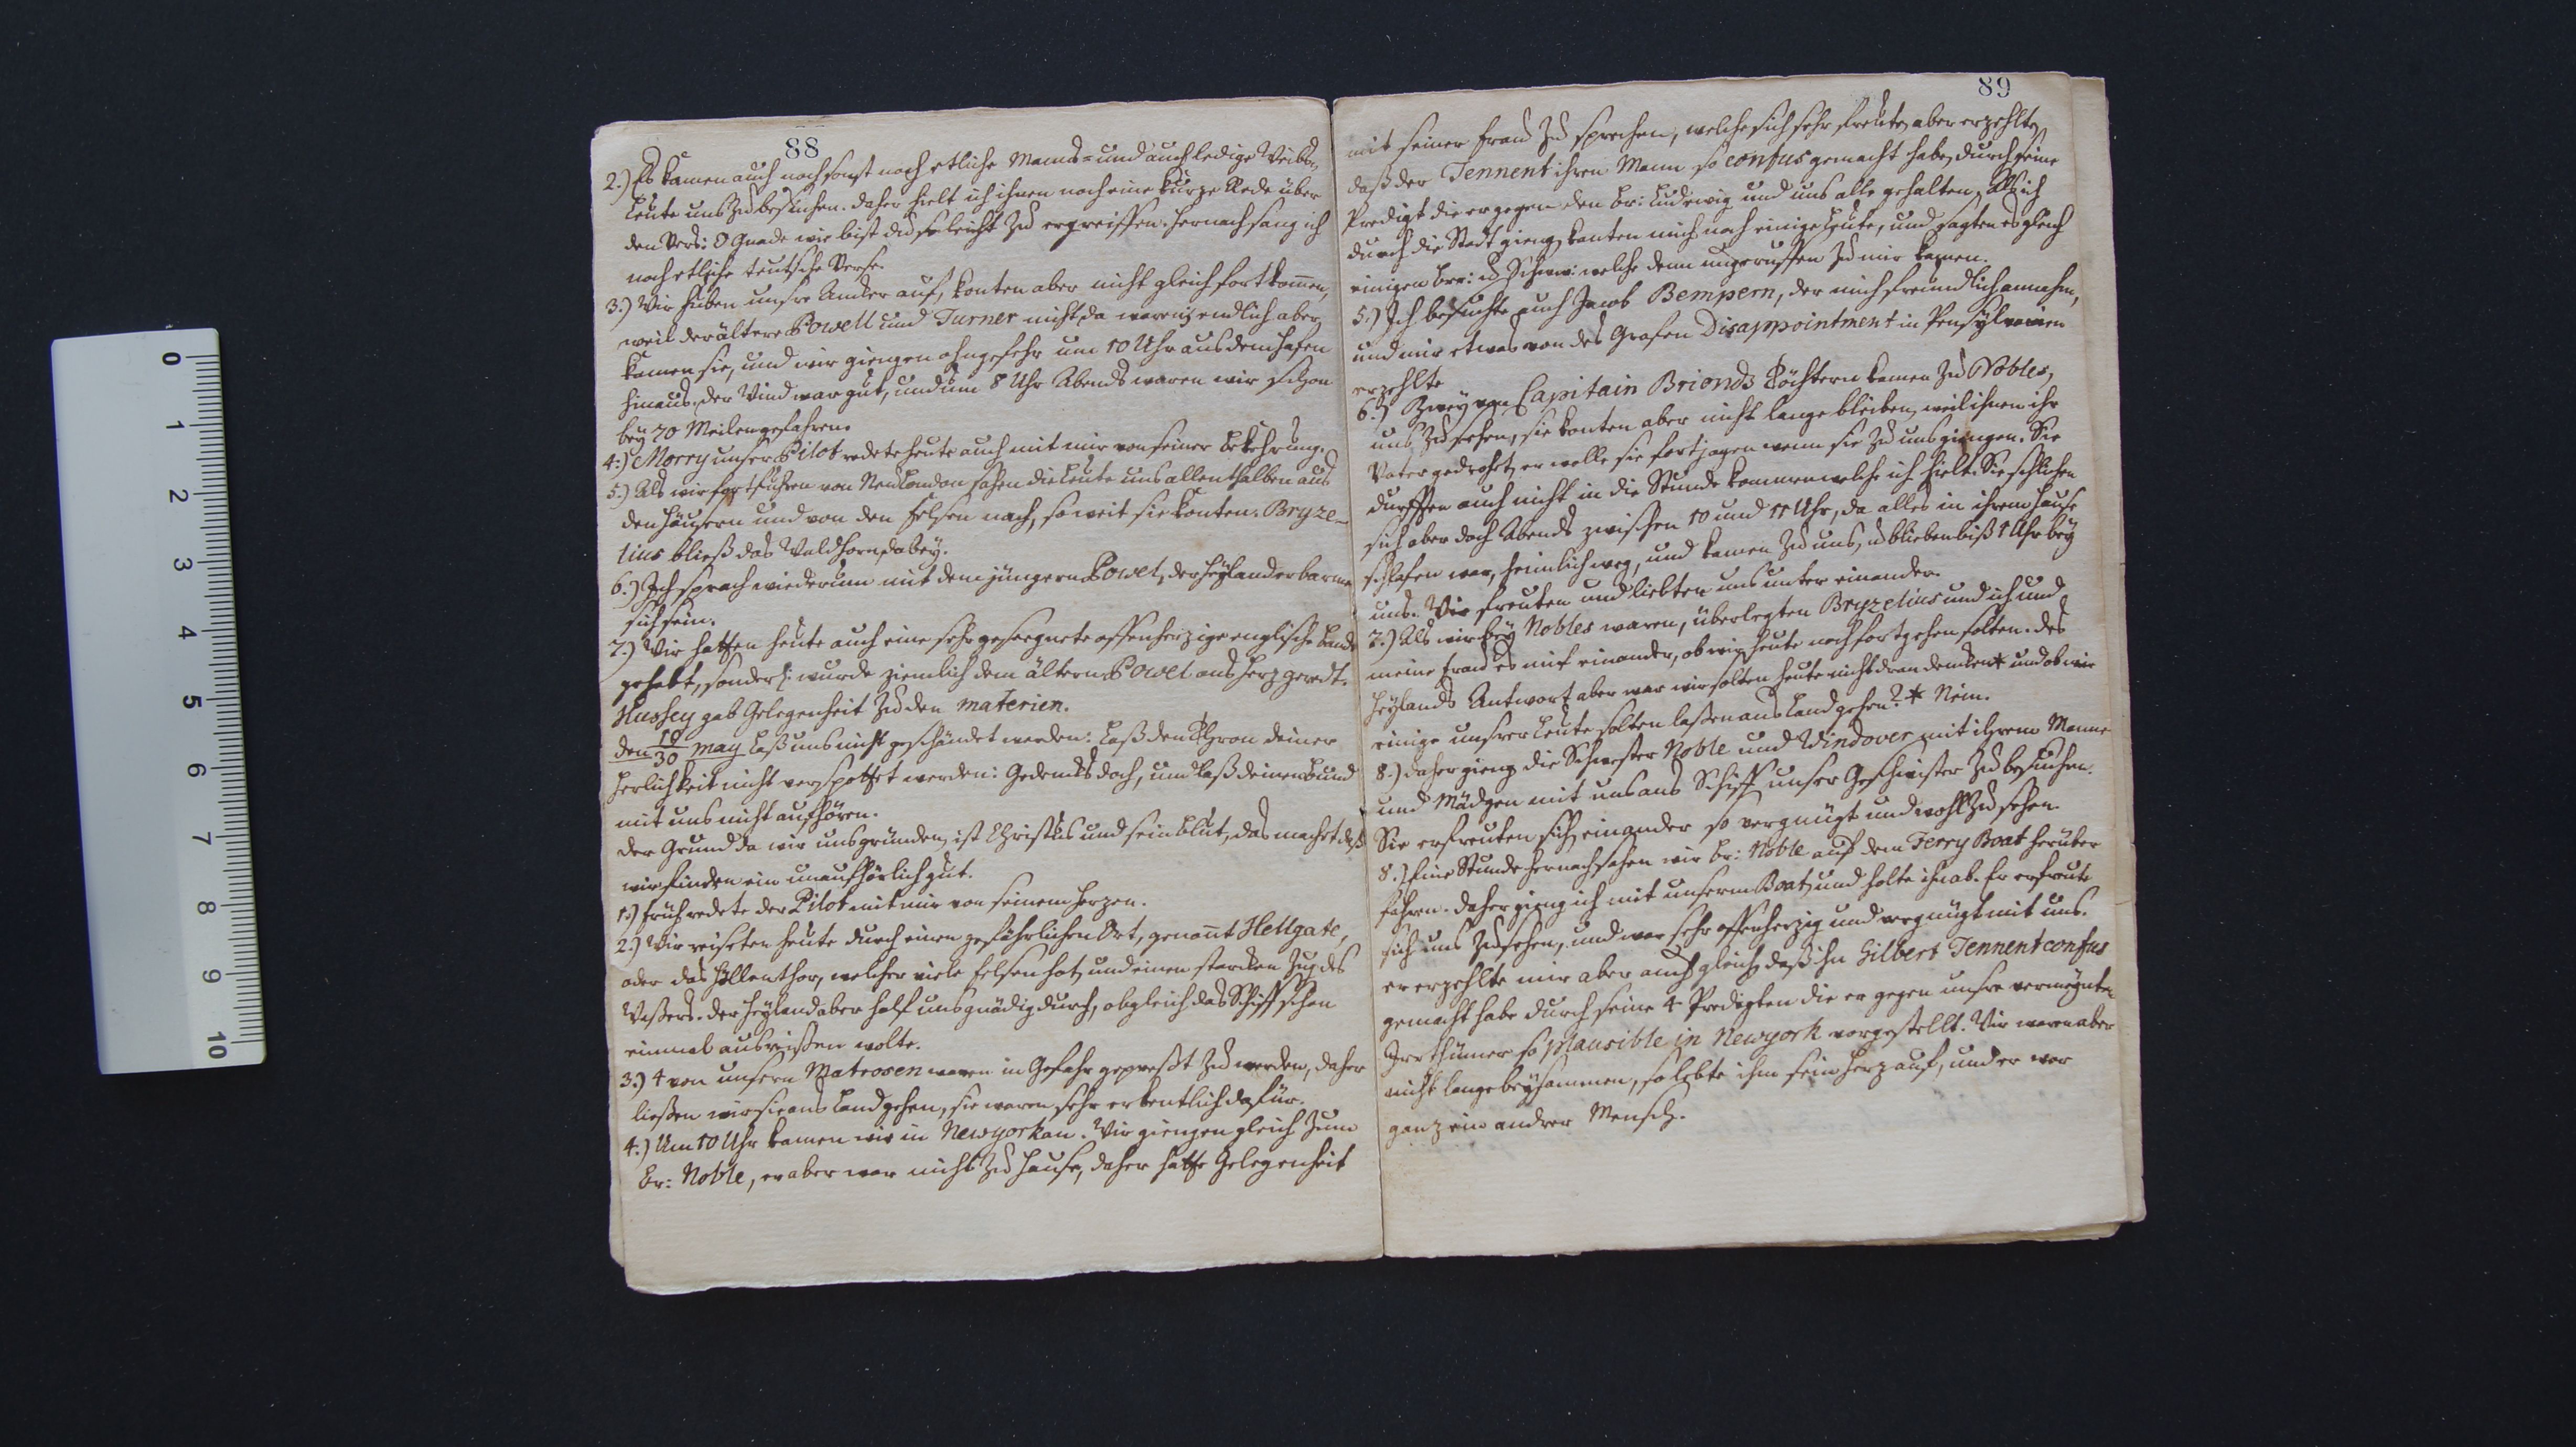 88
2.) Es kamen auch noch sonst noch etliche Manns- und auch ledige Weibs-
Leute uns zu besuchen. daher hielt ich ihnen noch eine kurze Rede über
den Vers: O Gnade wie bist du so leicht zu ergreiffen. hernach sang ich
noch etliche teutsche Verse.
3.) Wir huben unsre Ancker auf, konten aber nicht gleich fortkommen,
weil der ältere Powell und Turner nicht da waren; endlich aber
kamen sie, und wir giengen ohngefehr um 10 Uhr aus dem Hafen
hinaus. der Wind war gut, und um 8 Uhr Abends waren wir schon
bey 70 Meilen gefahren.
4.) Morry unser Pilot redete heute auch mit mir von seiner Bekehrung.
5.) Als wir fortfuhren von Neu London sahen die Leute uns allenthalben aus
den Häusern und von den Felsen nach, so weit sie konten. Bryze-
lius bließ das Waldhorn dabey.
6.) Ich sprach wiederum mit dem jüngern Powel, der Heyland erbarme
sich sein.
7.) Wir hatten heute auch eine sehr geseegnete offenherzige englische Bande
gehabt, sonderl: wurde ziemlich dem ältern Powel ans Herz geredt.
Hussey gab Gelegenheit zu den materien.
den 19/30 may Laß uns nicht geschändet werden: Laß den Thron deiner
Herlichkeit nicht verspottet werden: Gedencke doch, und laß deinen Bund
mit uns nicht aufhören.
der Grund da wir uns gründen, ist Christus und sein Blut, das machet daß
wir finden ein unaufhörlich gut.
1.) Früh redete der Pilot mit mir von seinem Herzen.
2.) Wir reiseten heute durch einen gefährlichen Ort, genannt Hellgate,
oder das Höllenthor, welcher viele Felsen hat, und einen starcken Zug des
Waßers. der Heyland aber half uns gnädig durch, obgleich das Schiff schon
einmal ausreißen wolte.
3.) 4 von unsern Matrosen waren in Gefahr gepreßt zu werden, daher
ließen wir sie ans Land gehen, sie waren sehr erkentlich dafür.
4.) Um 10 Uhr kamen wir in Newyork an. Wir giengen gleich zum
Br: Noble, er aber war nicht zu Hause, daher hatte Gelegenheit
89
mit seiner Frau zu sprechen, welche sich sehr freute, aber erzehlte,
daß der Tennent ihren Mann so confus gemacht habe durch seine
Predigt die er gegen den Br: Ludewig und uns alle gehalten. Als ich
durch die Stadt gieng, kanten mich noch einige Leute, und sagten es gleich
einigen Brr: u Schww: welche denn ungeruffen zu mir kamen.
5.) Ich besuchte auch Jacob Bempern, der mich freundlich annahm,
und mir etwas von des Grafen Disappointment in Pensylvanien
erzehlte
6.) Zwey von Capitain Brionds Töchtern kamen zu Nobles,
uns zu sehen, sie konten aber nicht lange bleiben, weil ihnen ihr
Vater gedrohet, er wolle sie fortjagen wenn sie zu uns giengen. Sie
durfften auch nicht in die Stunde kommen welche ich hielt. Sie schlichen
sich aber doch Abends zwischen 10 und 11 Uhr, da alles in ihrem Hause
schlafen war, heimlich weg, und kamen zu uns, u blieben biß 1 Uhr bey
uns. Wir freuten und liebten uns unter einander.
7.) Als wir bey Nobles waren, überlegten Bryzelius und ich und
meine Frau es mit einander, ob wir heute noch fortgehen solten. des
Heylands Antwort aber war wir solten heute nicht dran dencken * und ob wir
einige unsrer Leute solten laßen ans Land gehen? * Nein.
8.) daher gieng die Schwester Noble und Windover mit ihrem Manne
und Mädgen mit uns ans Schiff unser Geschwister zu besuchen.
Sie erfreuten sich einander so vergnügt und wohl zu sehen.
8.) Eine Stunde hernach sahen wir Br: Noble auf dem Ferry Boat herüber
fahren. daher gieng ich mit unserm Boat, und holte ihn ab. Er erfreute
sich uns zu sehen, und war sehr offenherzig und vergnügt mit uns.
er erzehlte mir aber auch gleich, daß ihn Gilbert Tennent confus
gemacht habe durch seine 4 Predigten die er gegen unsre vermeynte
Irrthümer so plausible in Newyork vorgestellt. Wir waren aber
nicht lange beysammen, so lebte ihm sein Herz auf, und er war
ganz ein andrer Mensch.
0
1
2
3
4
5
6
7
8
9
10